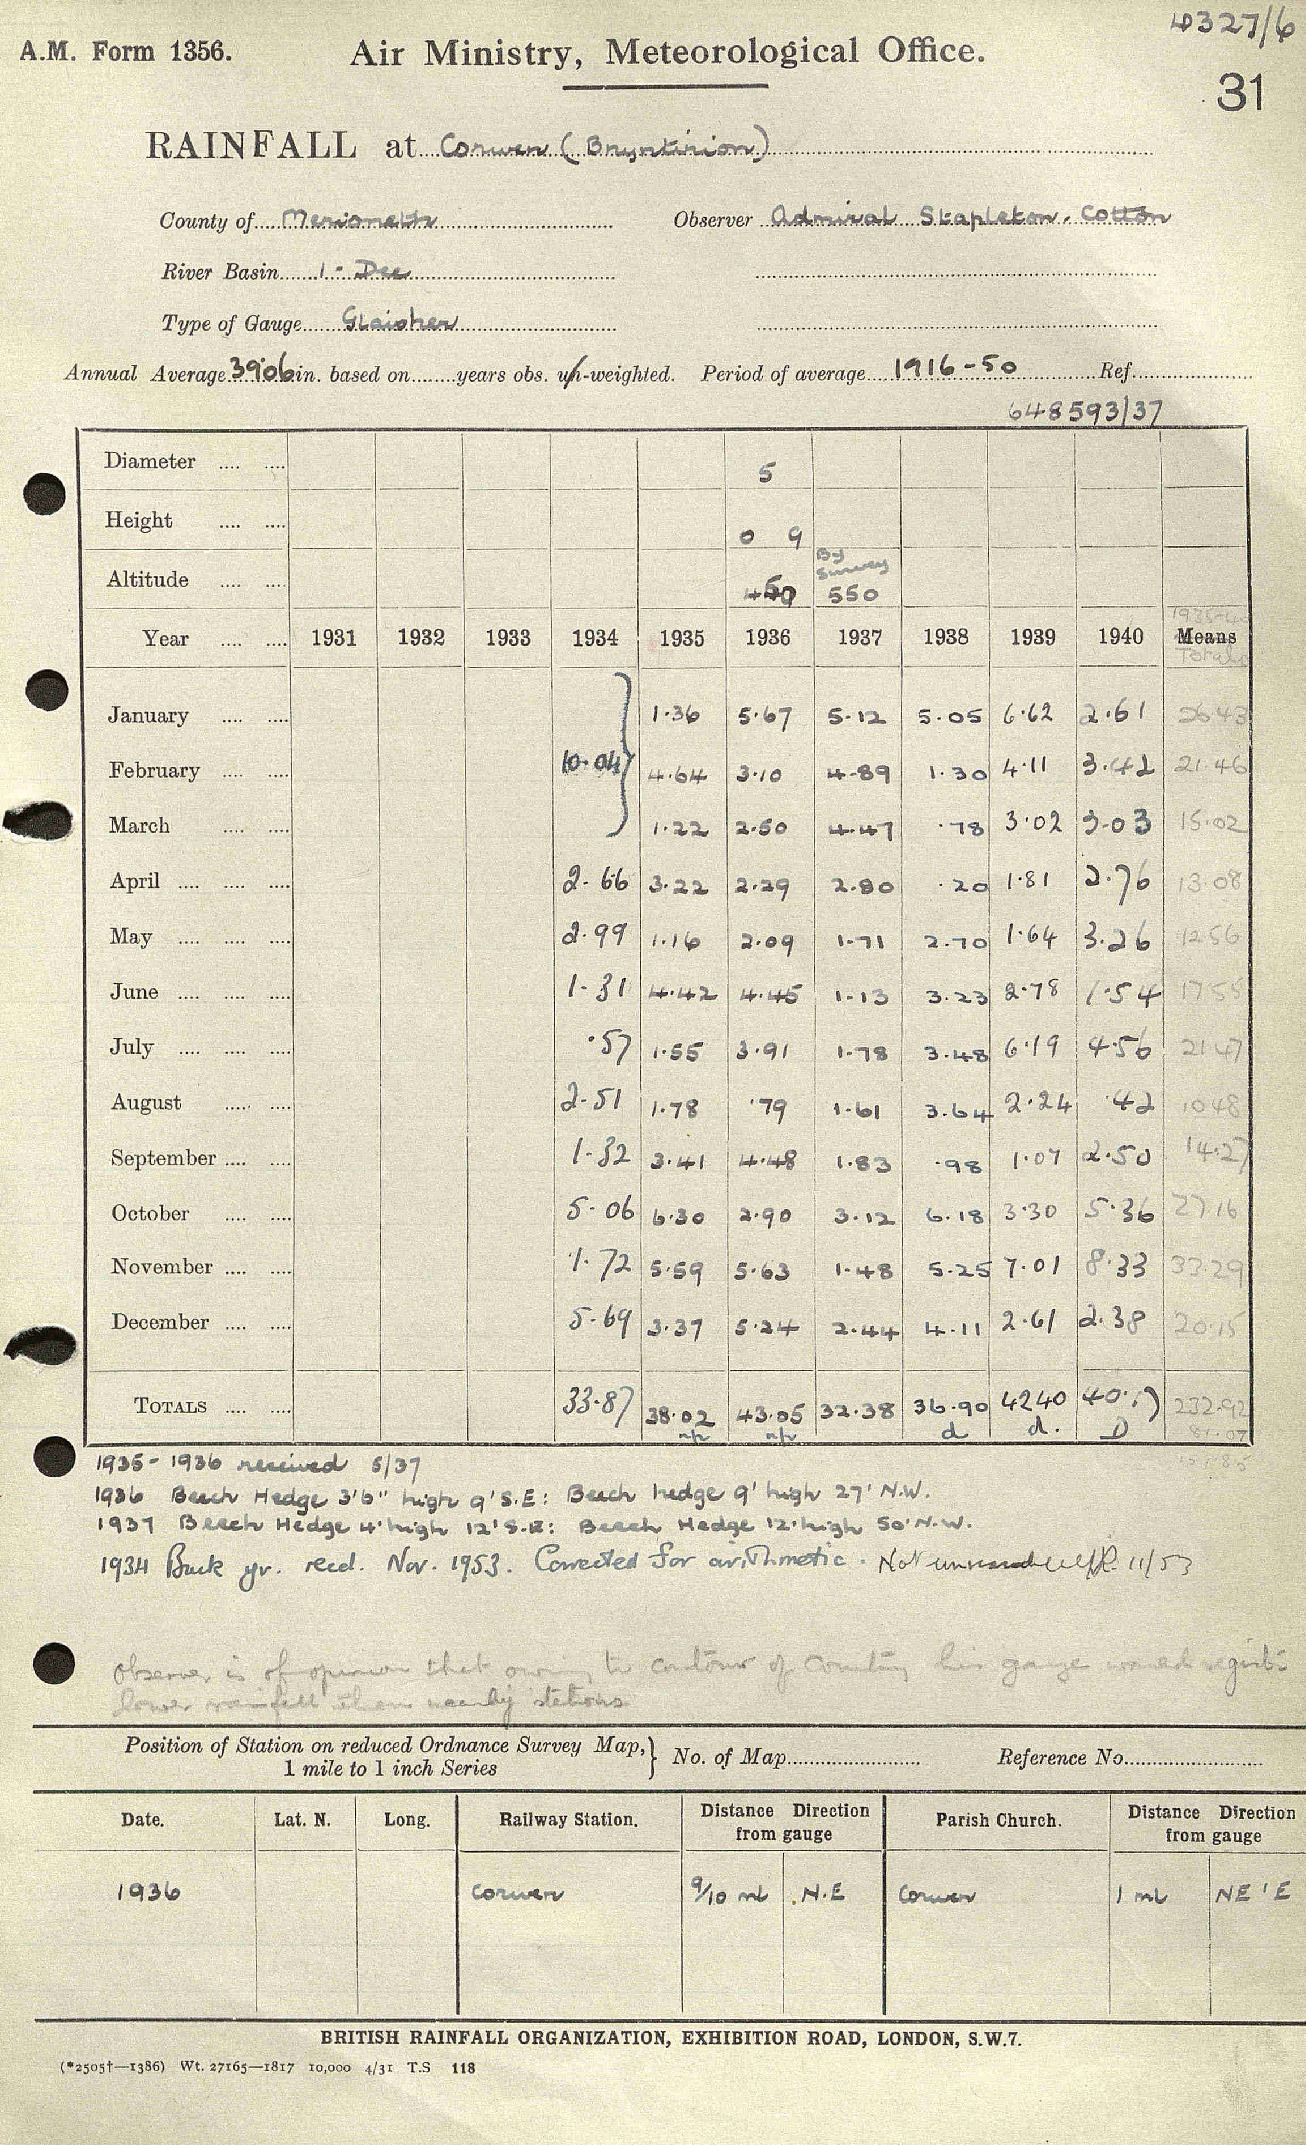 4327/6
A.M. Form 1356. Air Ministry, Meteorological Office.
31
RAINFALL at Corwen (Bryntirion)
County of Merioneth Observer Admiral Stapleton-Cotton
River Basin 1 - Dee
Type of Gauge Glaisher
Annual Average 39.06 in. based on ........ years obs. un-weighted. Period of average 1916-50 Ref.
648593/37
Diameter 5
Height 0 9
By Survey
Altitude 550
Year 1931 1932 1933 1934 1935 1936 1937 1938 1939 1940 Means
Totals
January 1.36 5.67 5.12 5.05 6.62 2.61 26.43
February 10.04 4.64 3.10 4.89 1.30 4.11 3.42 21.46
March 1.22 2.50 4.47 .78 3.02 3.03 15.02
April 2.66 3.22 2.29 2.80 .20 1.81 2.76 13.08
May 2.99 1.16 2.09 1.71 2.70 1.64 3.26 12.56
June 1.31 4.42 4.45 1.13 3.23 2.78 1.54 17.55
July .57 1.55 3.91 1.78 3.48 6.19 4.56 21.47
August 2.51 1.78 .79 1.61 3.64 2.24 .42 10.48
September 1.32 3.41 4.48 1.83 .98 1.07 2.50 14.27
October 5.06 6.30 2.90 3.12 6.18 3.30 5.36 27.16
November 1.72 5.59 5.63 1.48 5.25 7.01 8.33 33.29
December 5.69 3.37 5.24 2.44 4.11 2.61 2.38 20.15
TOTALS 33.87 38.02 43.05 32.38 36.90 42.40 40.17 232.92
d d. D 81.07
1935-1936 received 5/37
1936 Beech Hedge 3'6" high 9' S.E: Beech hedge 9' high 27' N.W.
1937 Beech Hedge 4' high 12' S.E: Beech Hedge 12' high 50' N.W.
1934 Back yr. recd. Nov. 1953. Corrected for arithmetic. Not 11/53
Observer is of opinion that owing to contour of country his gauge would
lower rainfall than nearby stations
Position of Station on reduced Ordnance Survey Map, } No. of Map Reference No.
1 mile to 1 inch Series
Date. Lat. N. Long. Railway Station. Distance Direction from gauge Parish Church. Distance Direction from gauge
1936 Corwen 9/10 ml N.E Corwen 1 ml NE'E
BRITISH RAINFALL ORGANIZATION, EXHIBITION ROAD, LONDON, S.W.7.
(*2505†—1386) Wt. 27165—1817 10,000 4/31 T.S 118